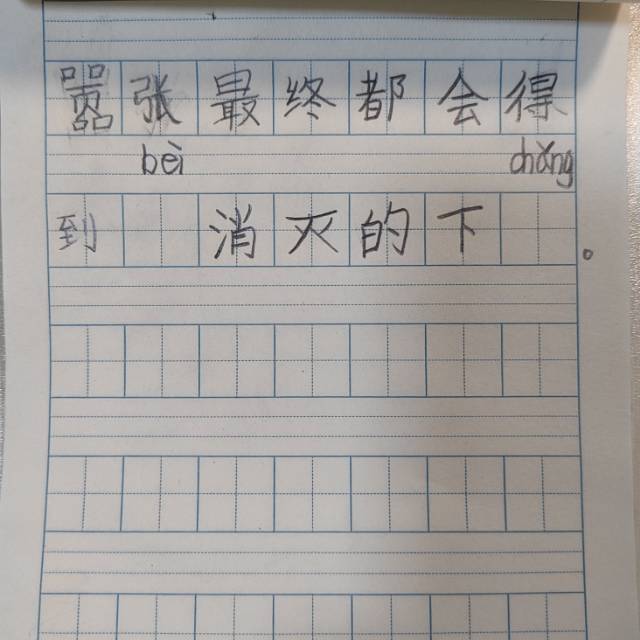 嚣张最终都会得
bèi chǎng
到 消灭的下 。